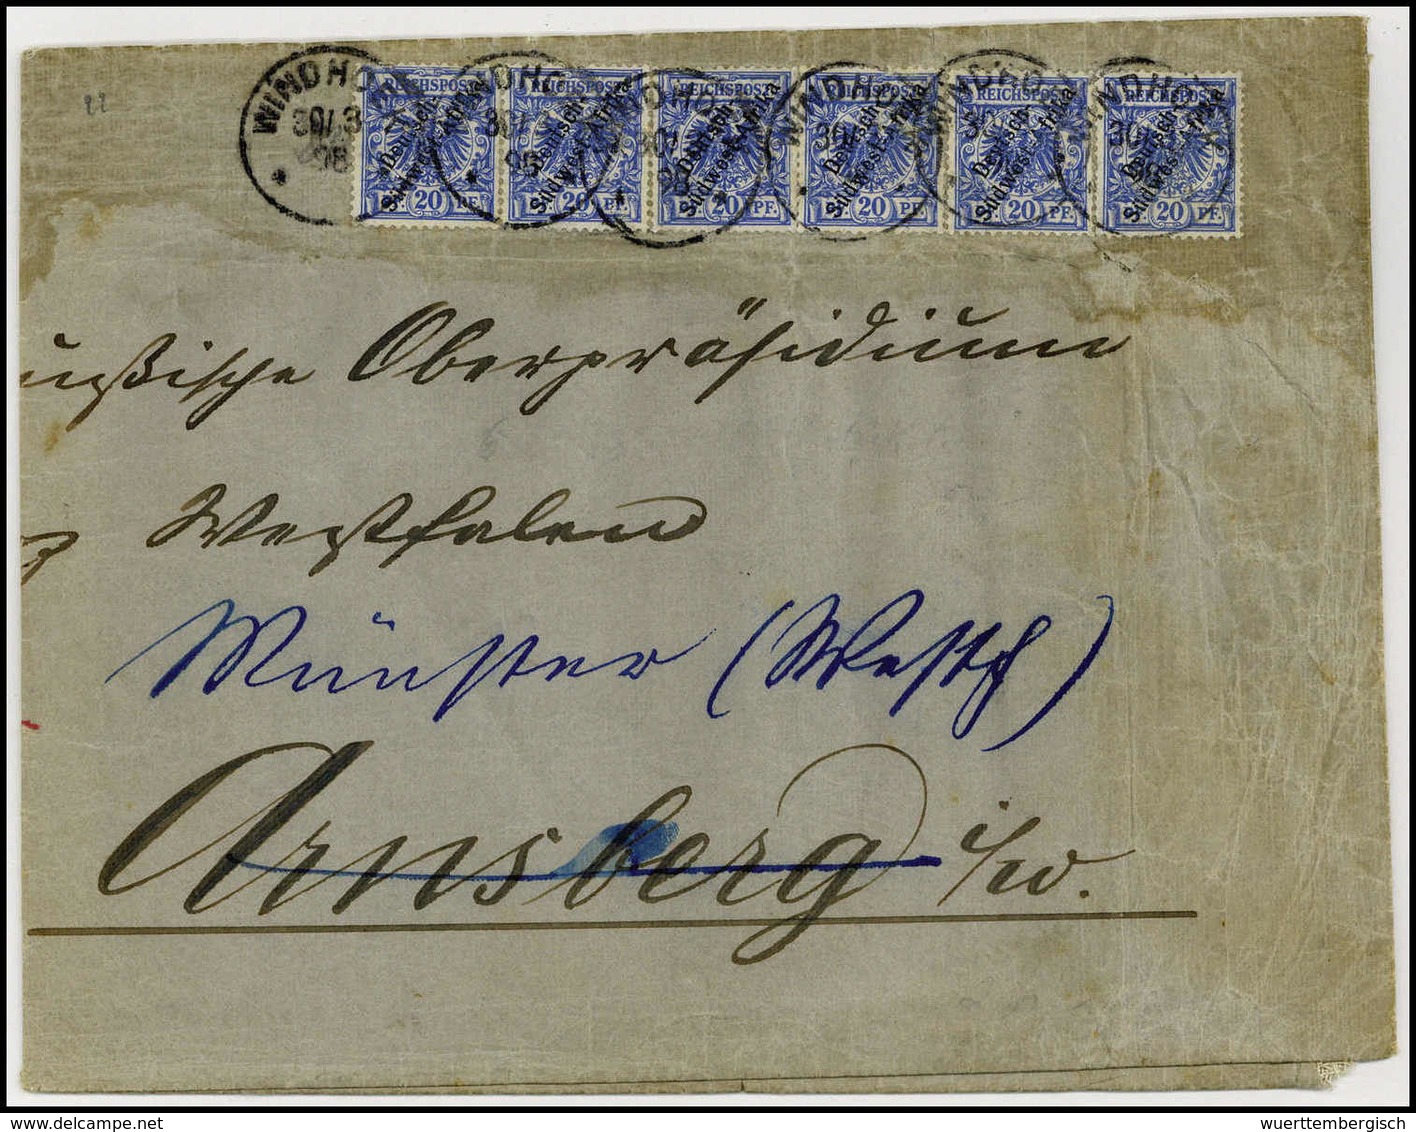 22
WINDHOEK WINDHOEK WINDHOEK WINDHOEK WINDHOEK WINDHOEK
REICHSPOST REICHSPOST REICHSPOST REICHSPOST REICHSPOST REICHSPOST
30/3 98
Deutsch- Südwest-Afrika Deutsch- Südwest-Afrika Deutsch- Südwest-Afrika Deutsch- Südwest-Afrika Deutsch- Südwest-Afrika Deutsch- Südwest-Afrika
20 PF. 20 PF. 20 PF. 20 PF. 20 PF. 20 PF.
ußische Oberpräsidium
Westfalen
Münster (Westf)
Arnsberg i/W.
wuerttembergisch